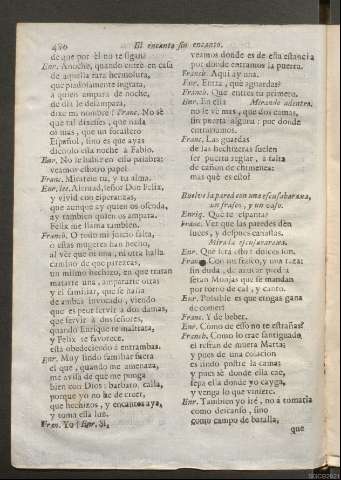 486 El encanto sin encanto.
de que por él no te sigan?
Enr. Anoche, quando entrè en casa
de aquella rara hermosura,
que piadosamente ingrata,
à quien ampara de noche,
de dia le desampara,
dixe mi nombre? Franc. No sè
que tal dixesses, que nada
oí mas, que un forastero
Español, sino es que ayas
dicholo essa noche à Fabio.
Enr. No le hablè en essa palabra:
veamos essotro papel.
Franc. Mirarè tu, y tu alma.
Enr. lee. Alentad, señor Don Felix,
y vivid con esperanzas,
que aunque ay quien os ofenda,
ay tambien quien os ampara.
Felix me llama tambien.
Franc. O todo mi juizio falta,
ò estas mugeres han hecho,
al vèr que os una, ni otra halla
camino de que parezcas,
un mismo hechizo, en que tratan
matarte una, ampararte otra:
y el familiar, que se halla
de ambas invocado, viendo
que es peor servir à dos damas,
que servir à dos señores,
quando Enrique te maltrata,
y Felix te favorece,
està obedeciendo à entrambas.
Enr. Muy lindo familiar fuera
el que, quando me amenaza,
me avisa de que me ponga
bien con Dios: barbaro, calla,
porque yo no he de creer,
que hechizos, y encantos aya,
y toma essa luz.
Fran. Yo? Enr. Sì,
veamos donde es de esta estancia
por donde entramos la puerta.
Franc. Aqui ay una.
Enr. Entra, què aguardas?
Franc. Què entres tu primero.
Enr. En esta Mirando adentro.
no se vè mas, que dos camas,
sin puerta alguna por donde
entraramos.
Franc. Las guardas
de las hechizeras suelen
ser puerta reglar, à falta
de cañon de chimenea:
mas què es esso?
Buelve la pared con una escusabaraxa,
un frasco, y un vaso.
Enriq. Què te espanta?
Franc. Vèr que las paredes dèn
luces, y despues canastas.
Mira la escusabaraxa.
Enr. Què serà esto? dulces son.
Franc. Con un frasco, y una taza:
sin duda, de azucar piedra
seràn Monjas que se mandan
por torno de cal, y canto.
Enr. Possible es que tengas gana
de comer?
Franc. Y de beber.
Enr. Como de esso no te estrañas?
Franc. Como lo trae santiguado
el refran de nuestra Marta;
y pues de una colacion
es lindo postre la camas
y pues sè donde ella cae,
sepa ella donde yo cayga,
y venga lo que viniere.
Enr. Tambien yo irè, no à tomarla
como descanso, sino
como campo de batalla,
que